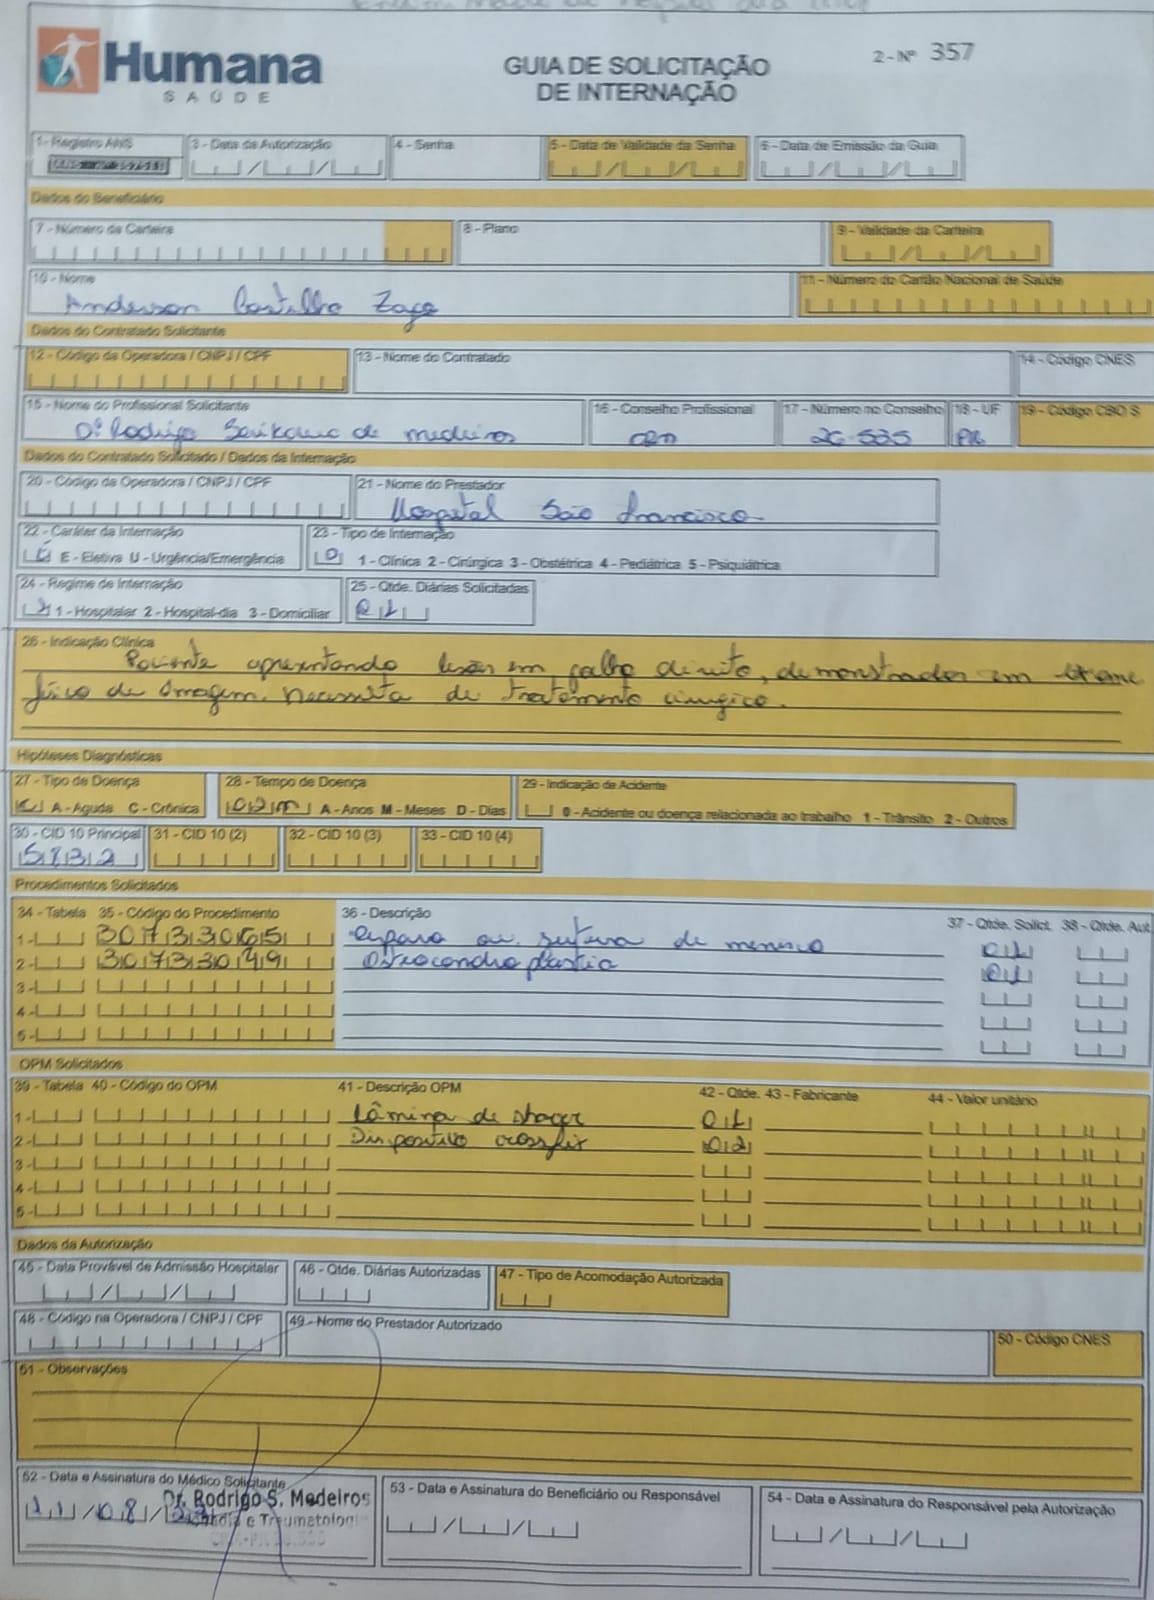 Humana
SAÚDE
GUIA DE SOLICITAÇÃO
DE INTERNAÇÃO
2 - Nº 357
1 - Registro ANS
3 - Data da Autorização
4 - Senha
5 - Data de Validade da Senha
6 - Data de Emissão da Guia
Dados do Beneficiário
7 - Número da Carteira
8 - Plano
9 - Validade da Carteira
10 - Nome
Anderson Castilho Zago
11 - Número do Cartão Nacional de Saúde
Dados do Contratado Solicitante
12 - Código da Operadora / CNPJ / CPF
13 - Nome do Contratado
14 - Código CNES
15 - Nome do Profissional Solicitante
Dr Rodrigo de medeiros
16 - Conselho Profissional
17 - Número no Conselho
26-535
18 - UF
PR
19 - Código CBO S
Dados do Contratado Solicitado / Dados da Internação
20 - Código da Operadora / CNPJ / CPF
21 - Nome do Prestador
Hospital São Francisco
22 - Caráter da Internação
E E - Eletiva U - Urgência/Emergência
23 - Tipo de Internação
1 - Clínica 2 - Cirúrgica 3 - Obstétrica 4 - Pediátrica 5 - Psiquiátrica
24 - Regime de Internação
1 - Hospitalar 2 - Hospital-dia 3 - Domiciliar
25 - Qtde. Diárias Solicitadas
01
26 - Indicação Clínica
Paciente apresentando lesão em joelho direito, demonstrados em
de imagem. Necessita de tratamento cirúrgico.
Hipóteses Diagnósticas
27 - Tipo de Doença
C A - Aguda C - Crônica
28 - Tempo de Doença
02 m A - Anos M - Meses D - Dias
29 - Indicação de Acidente
0 - Acidente ou doença relacionada ao trabalho 1 - Trânsito 2 - Outros
30 - CID 10 Principal
S832
31 - CID 10 (2)
32 - CID 10 (3)
33 - CID 10 (4)
Procedimentos Solicitados
34 - Tabela 35 - Código do Procedimento 36 - Descrição 37 - Qtde. Solict. 38 - Qtde. Aut.
1 - 30733065 reparo ou sutura de menisco 01
2 - 30733049 Osteocondroplastia 01
3 -
4 -
5 -
OPM Solicitados
39 - Tabela 40 - Código do OPM 41 - Descrição OPM 42 - Qtde. 43 - Fabricante 44 - Valor unitário
1 - Lâmina de shaver 01
2 - Dispositivo crossfix 02
3 -
4 -
5 -
Dados da Autorização
45 - Data Provável de Admissão Hospitalar
46 - Qtde. Diárias Autorizadas
47 - Tipo de Acomodação Autorizada
48 - Código na Operadora / CNPJ / CPF
49 - Nome do Prestador Autorizado
50 - Código CNES
51 - Observações
52 - Data e Assinatura do Médico Solicitante
11/08/23
Dr. Rodrigo S. Medeiros
e Traumatologi
53 - Data e Assinatura do Beneficiário ou Responsável
54 - Data e Assinatura do Responsável pela Autorização